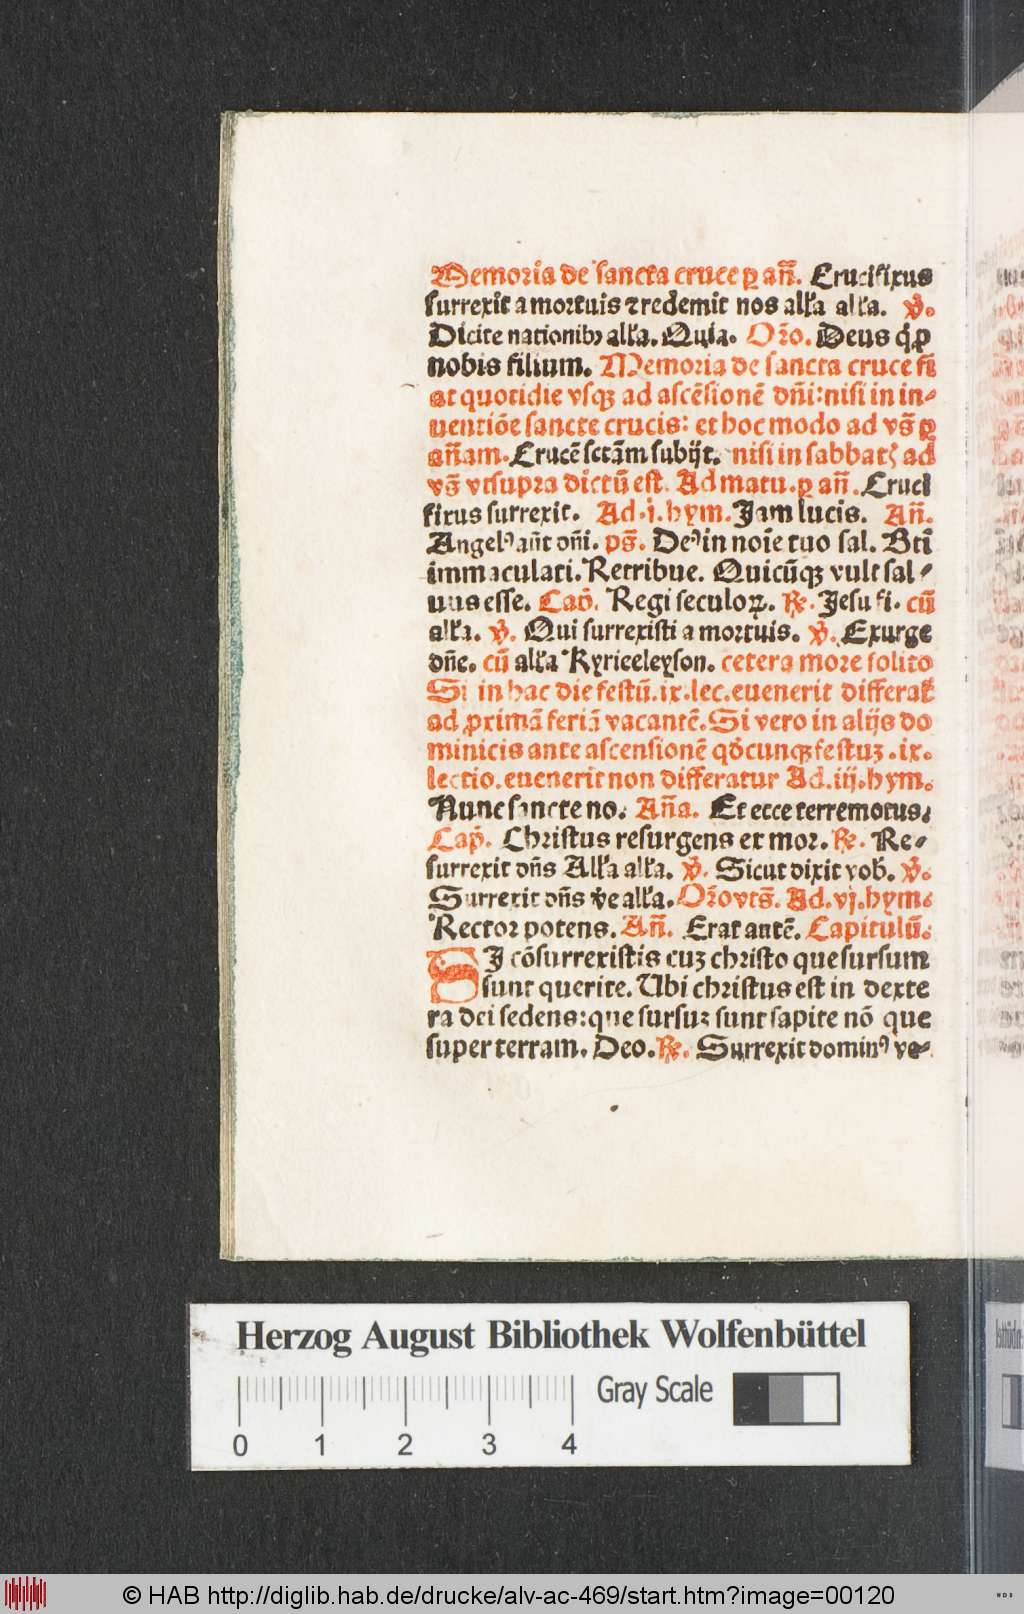 Memoria de sancta cruce ꝑ añ. Crucifixus
surrexit a mortuis ⁊ redemit nos alľa alľa. ℣.
Dicite nationibꝰ alľa. Quia. Oŕo. Deus q̇ ꝓ
nobis filium. Memoria de sancta cruce fi
at quotidie vsqꝫ ad ascēsionē dñi: nisi in in⸗
uentiōe sancte crucis: et hoc modo ad vs̄ ꝑ
añam. Crucē sctām subijt. nisi in sabbatꝭ ad
vs̄ vtsupra dictū est. Ad matu. ꝑ añ. Cruci
fixus surrexit. Ad .i. hym. Jam lucis. Añ.
Angelꝰ aūt dñi. ps̄. Deꝰ in noīe tuo sal. Bti
immaculati. Retribue. Quicūqꝫ vult sal⸗
uus esse. Cap̄. Regi seculoꝝ. ℟. Jesu fi. cū
alľa. ℣. Qui surrexisti a mortuis. ℣. Exurge
dñe. cū alľa Kyrieeleyson. cetera more solito
Si in hac die festū .ix. lec. euenerit differat̄
ad ꝓximā feriā vacantē. Si vero in alijs do
minicis ante ascensionē qōcunqꝫ festuꝫ .ix.
lectio. euenerit non differatur Ad .iij. hym.
Nunc sancte no. Aña. Et ecce terremotus.
Cap̄. Christus resurgens ex mor. ℟. Re⸗
surrexit dñs Alľa alľa. ℣. Sicut dixit vob̄. ℣.
Surrexit dñs v̄e alľa. Oŕo vts̄. Ad .vj. hym.
Rector potens. Añ. Erat autē. Capitulū.
SJ cōsurrexistis cuꝫ christo que sursum
sunt querite. Ubi christus est in dexte
ra dei sedens: que sursuꝫ sunt sapite nō que
super terram. Deo. ℟. Surrexit dominꝰ ve⸗
Herzog August Bibliothek Wolfenbüttel
Gray Scale
0 1 2 3 4
© HAB http://diglib.hab.de/drucke/alv-ac-469/start.htm?image=00120